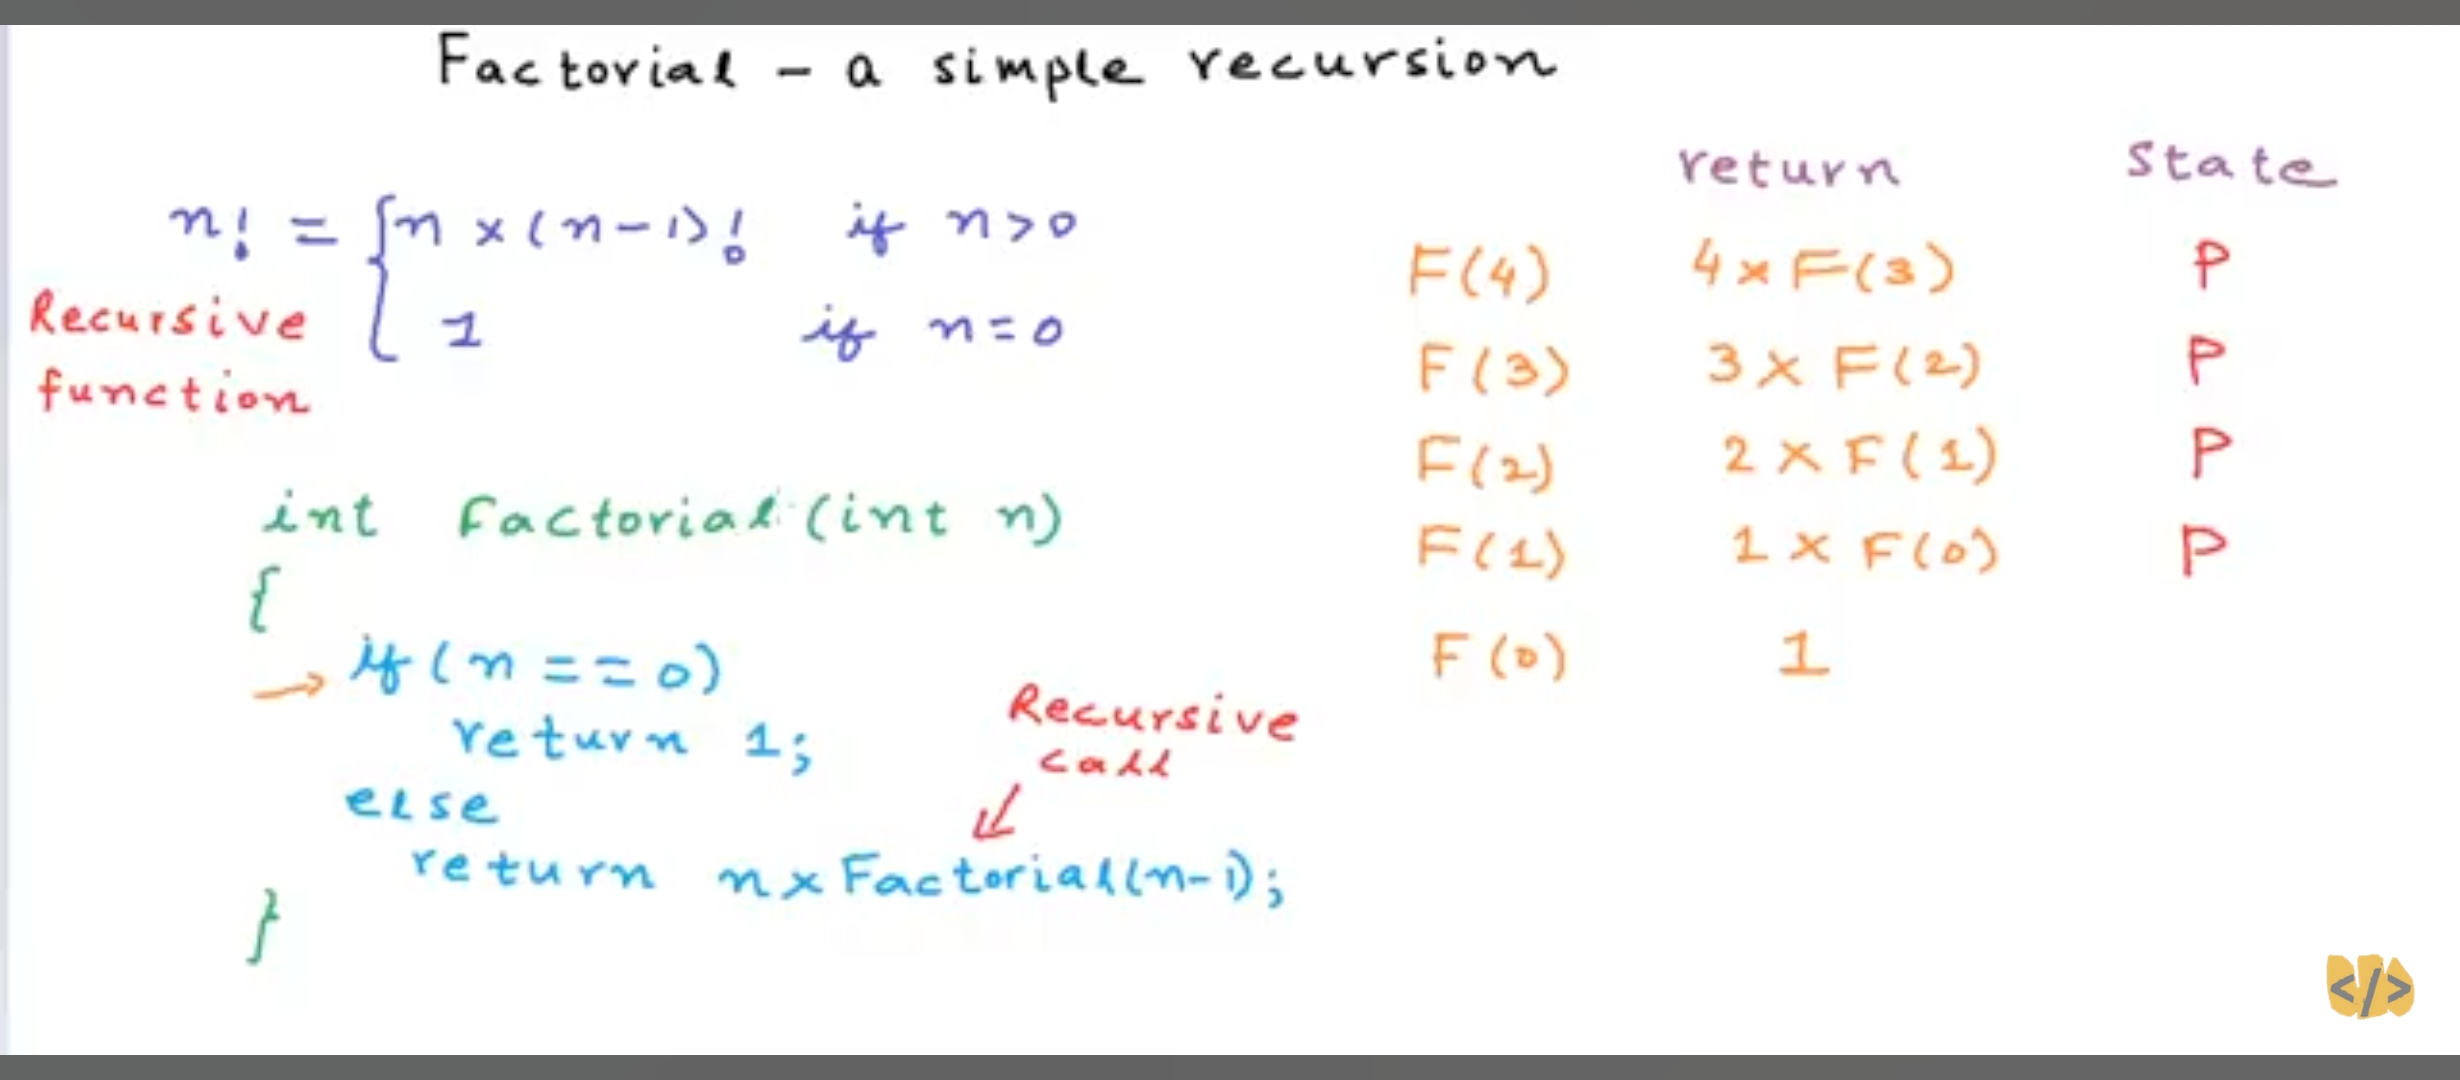 Factorial - a simple recursion
n! = { n × (n-1)! if n>0
1 if n=0
Recursive
function
int Factorial (int n)
{
→ if (n == 0)
return 1;
else
return n × Factorial(n-1);
}
Recursive
call
return state
F(4) 4 × F(3) P
F(3) 3 × F(2) P
F(2) 2 × F(1) P
F(1) 1 × F(0) P
F(0) 1
</>